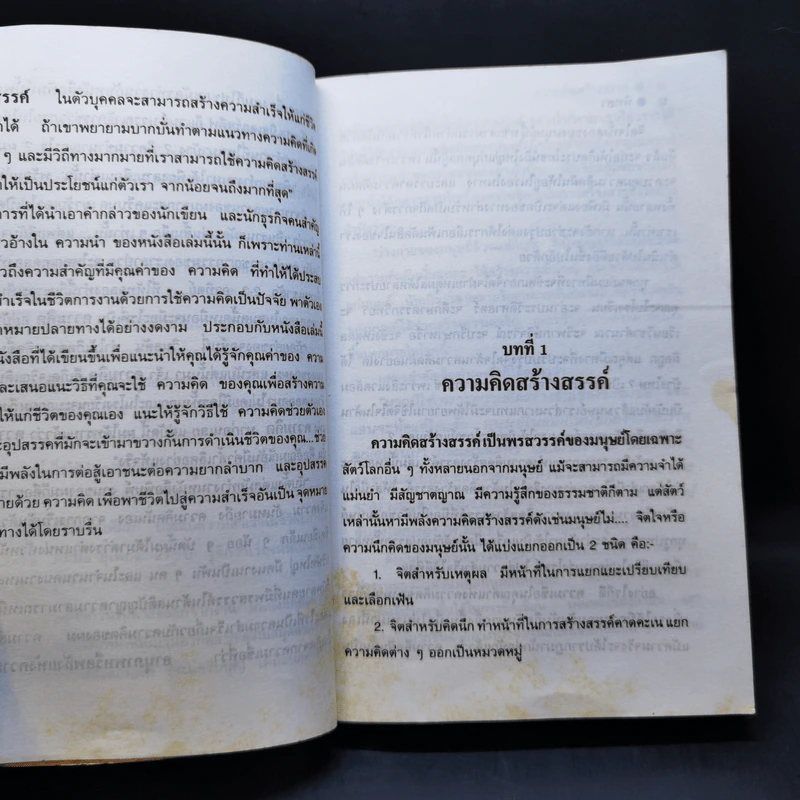 สรรค์ ในตัวบุคคลจะสามารถสร้างความสำเร็จให้แก่ชีวิต
ได้ ถ้าเขาพยายามบากบั่นทำตามแนวทางความคิดที่เกิด
ๆ และมีวิถีทางมากมายที่เราสามารถใช้ความคิดสร้างสรรค์
ให้เป็นประโยชน์แก่ตัวเรา จากน้อยจนถึงมากที่สุด"
การที่ได้นำเอาคำกล่าวของนักเขียน และนักธุรกิจคนสำคัญ
วอ้างใน ความนำ ของหนังสือเล่มนี้นั้น ก็เพราะท่านเหล่านี้
วถึงความสำคัญที่มีคุณค่าของ ความคิด ที่ทำให้ได้ประสบ
สำเร็จในชีวิตการงานด้วยการใช้ความคิดเป็นปัจจัย พาตัวเอง
หมายปลายทางได้อย่างงดงาม ประกอบกับหนังสือเล่มนี้
นังสือที่ได้เขียนขึ้นเพื่อแนะนำให้คุณได้รู้จักคุณค่าของ ความ
และเสนอแนะวิธีที่คุณจะใช้ ความคิด ของคุณเพื่อสร้างความ
ให้แก่ชีวิตของคุณเอง แนะให้รู้จักวิธีใช้ ความคิดช่วยตัวเอง
อุปสรรคที่มักจะเข้ามาขวางกั้นการดำเนินชีวิตของคุณ...ช่วย
มีพลังในการต่อสู้เอาชนะต่อความยากลำบาก และอุปสรรค
ายด้วย ความคิด เพื่อพาชีวิตไปสู่ความสำเร็จอันเป็น จุดหมาย
ทางได้โดยราบรื่น
บทที่ 1
ความคิดสร้างสรรค์
ความคิดสร้างสรรค์ เป็นพรสวรรค์ของมนุษย์โดยเฉพาะ
สัตว์โลกอื่น ๆ ทั้งหลายนอกจากมนุษย์ แม้จะสามารถมีความจำได้
แม่นยำ มีสัญชาตญาณ มีความรู้สึกของธรรมชาติก็ตาม แต่สัตว์
เหล่านั้นหามีพลังความคิดสร้างสรรค์ดังเช่นมนุษย์ไม่.... จิตใจหรือ
ความนึกคิดของมนุษย์นั้น ได้แบ่งแยกออกเป็น 2 ชนิด คือ:-
1. จิตสำหรับเหตุผล มีหน้าที่ในการแยกแยะเปรียบเทียบ
และเลือกเฟ้น
2. จิตสำหรับคิดนึก ทำหน้าที่ในการสร้างสรรค์คาดคะเน แยก
ความคิดต่าง ๆ ออกเป็นหมวดหมู่